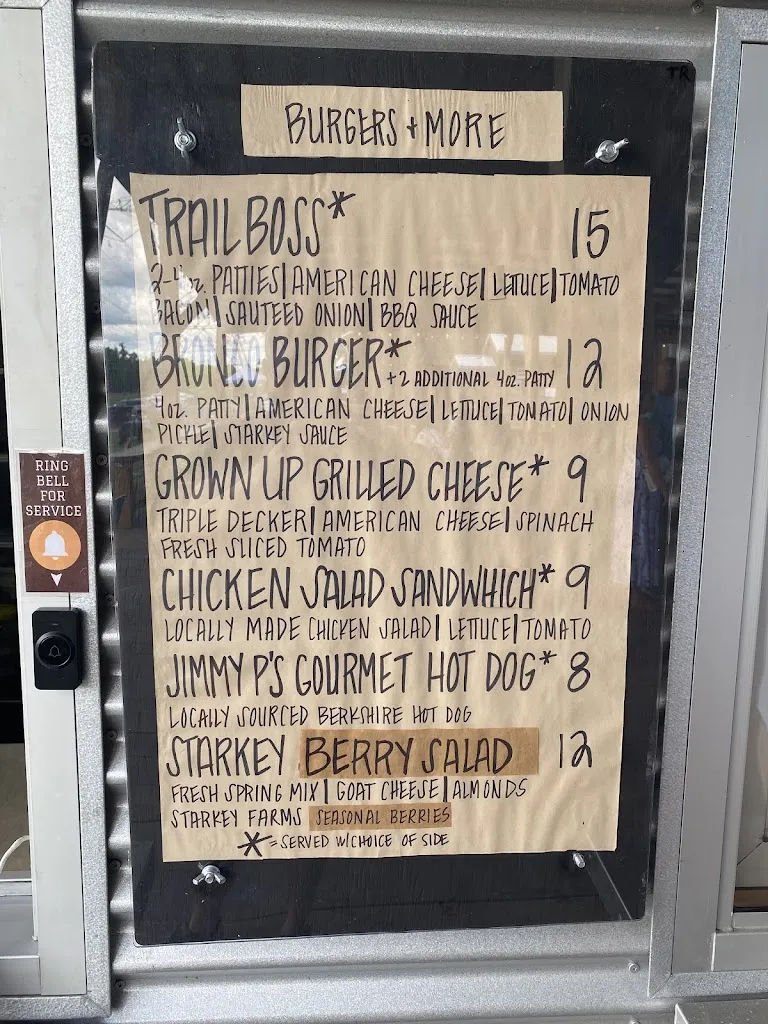 TR
BURGERS + MORE
TRAIL BOSS* 15
2-4oz. PATTIES | AMERICAN CHEESE | LETTUCE | TOMATO
BACON | SAUTEED ONION | BBQ SAUCE
BRONCO BURGER* +2 ADDITIONAL 4oz. PATTY 12
4oz. PATTY | AMERICAN CHEESE | LETTUCE | TOMATO | ONION
PICKLE | STARKEY SAUCE
GROWN UP GRILLED CHEESE* 9
TRIPLE DECKER | AMERICAN CHEESE | SPINACH
FRESH SLICED TOMATO
CHICKEN SALAD SANDWHICH* 9
LOCALLY MADE CHICKEN SALAD | LETTUCE | TOMATO
JIMMY P'S GOURMET HOT DOG* 8
LOCALLY SOURCED BERKSHIRE HOT DOG
STARKEY BERRY SALAD 12
FRESH SPRING MIX | GOAT CHEESE | ALMONDS
STARKEY FARMS SEASONAL BERRIES
* = SERVED W/CHOICE OF SIDE
RING
BELL
FOR
SERVICE